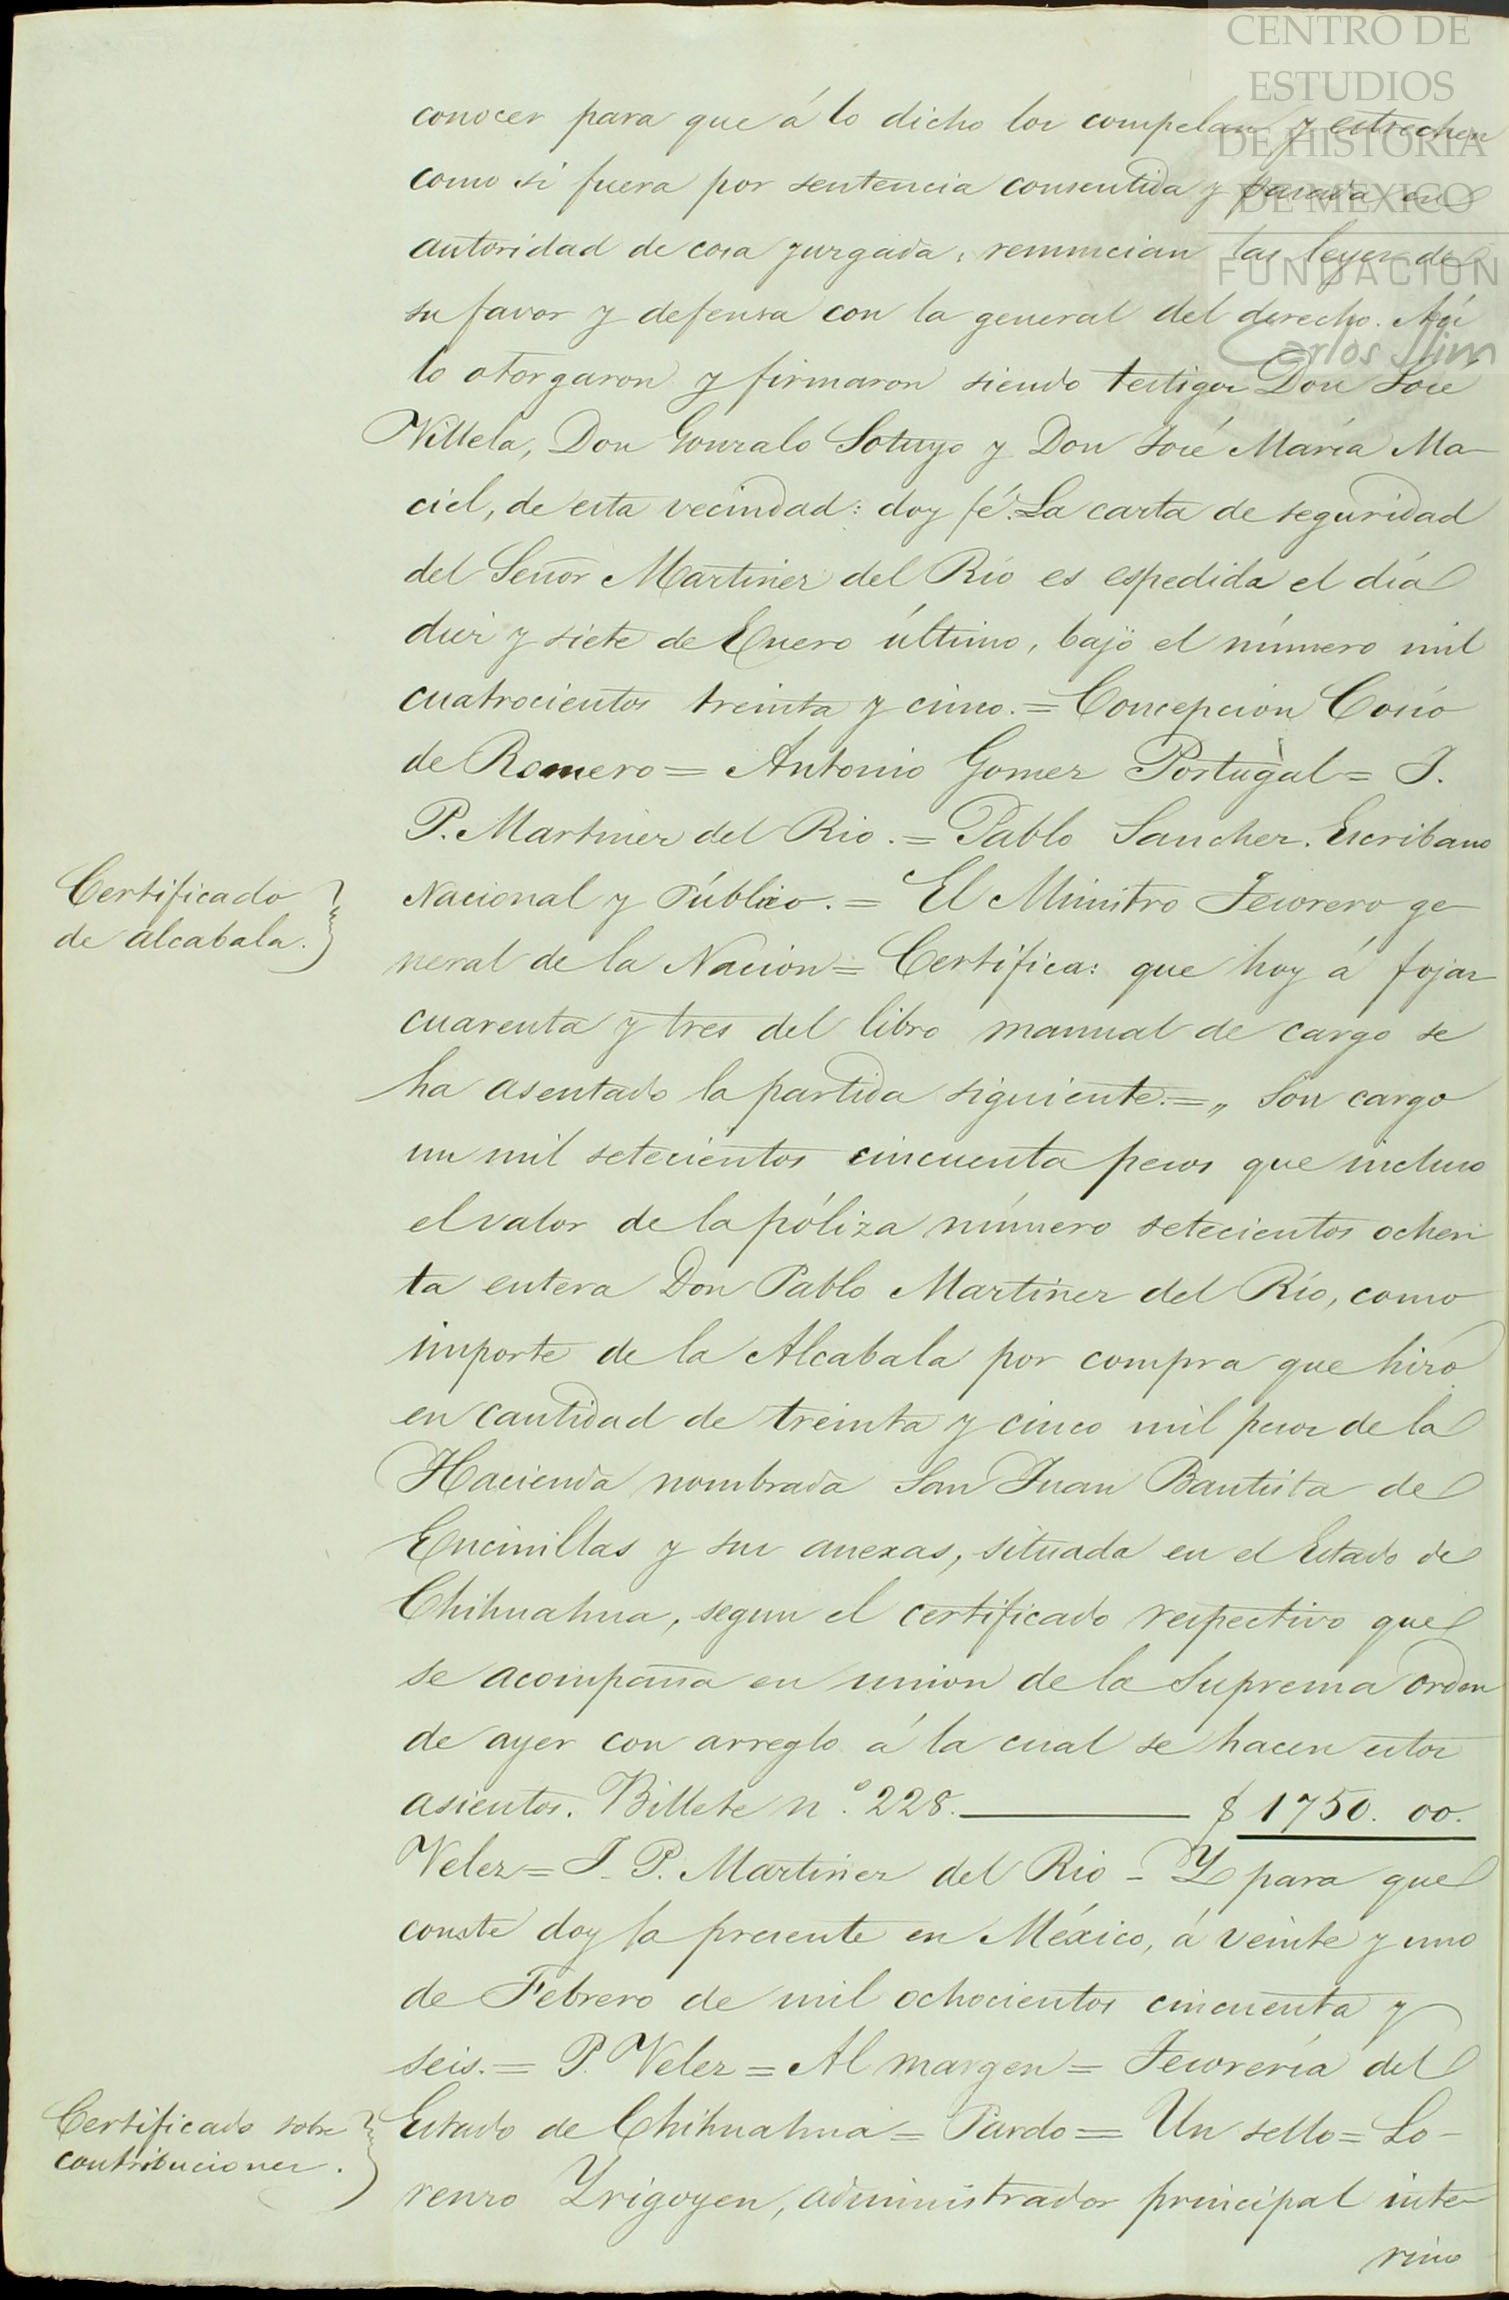 CENTRO DE
ESTUDIOS
DE HISTORIA
DE MEXICO
FUNDACION
Carlos Slim
conocer para que á lo dicho los compelan y estrechen
como si fuera por sentencia consentida y pasada en
autoridad de cosa juzgada; renuncian las leyes de
su favor y defensa con la general del derecho. Así
lo otorgaron y firmaron siendo testigos Don José
Villela, Don Gonzalo Sotuyo y Don José María Ma-
ciel, de esta vecindad: doy fé. La carta de seguridad
del Señor Martinez del Rio es espedida el día
diez y siete de Enero último, bajo el número mil
cuatrocientos treinta y cinco. = Concepcion Cosío
de Romero = Antonio Gomez Portugal = J.
P. Martinez del Rio. = Pablo Sanchez. Escribano
Certificado
de alcabala.
Nacional y Público. = El Ministro Tesorero ge-
neral de la Nacion = Certifica: que hoy á fojas
cuarenta y tres del libro manual de cargo se
ha asentado la partida siguiente. = „ Son cargo
un mil setecientos cincuenta pesos que incluso
el valor de la póliza número setecientos ochen
ta entera Don Pablo Martinez del Río, como
importe de la Alcabala por compra que hizo
en cantidad de treinta y cinco mil pesos de la
Hacienda nombrada San Juan Bautista de
Encinillas y sus anexas, situada en el Estado de
Chihuahua, segun el certificado respectivo que
se acompaña en union de la Suprema orden
de ayer con arreglo á la cual se hacen estos
asientos. Billete n.º 228. $ 1750. 00.
Velez = J. P. Martinez del Rio - Y para que
conste doy la presente en México, á veinte y uno
de Febrero de mil ochocientos cincuenta y
seis. = P. Velez = Al margen = Tesorería del
Certificado sobre
contribuciones.
Estado de Chihuahua = Pardo = Un sello = Lo-
renzo Yrigoyen, administrador principal inte-
rino